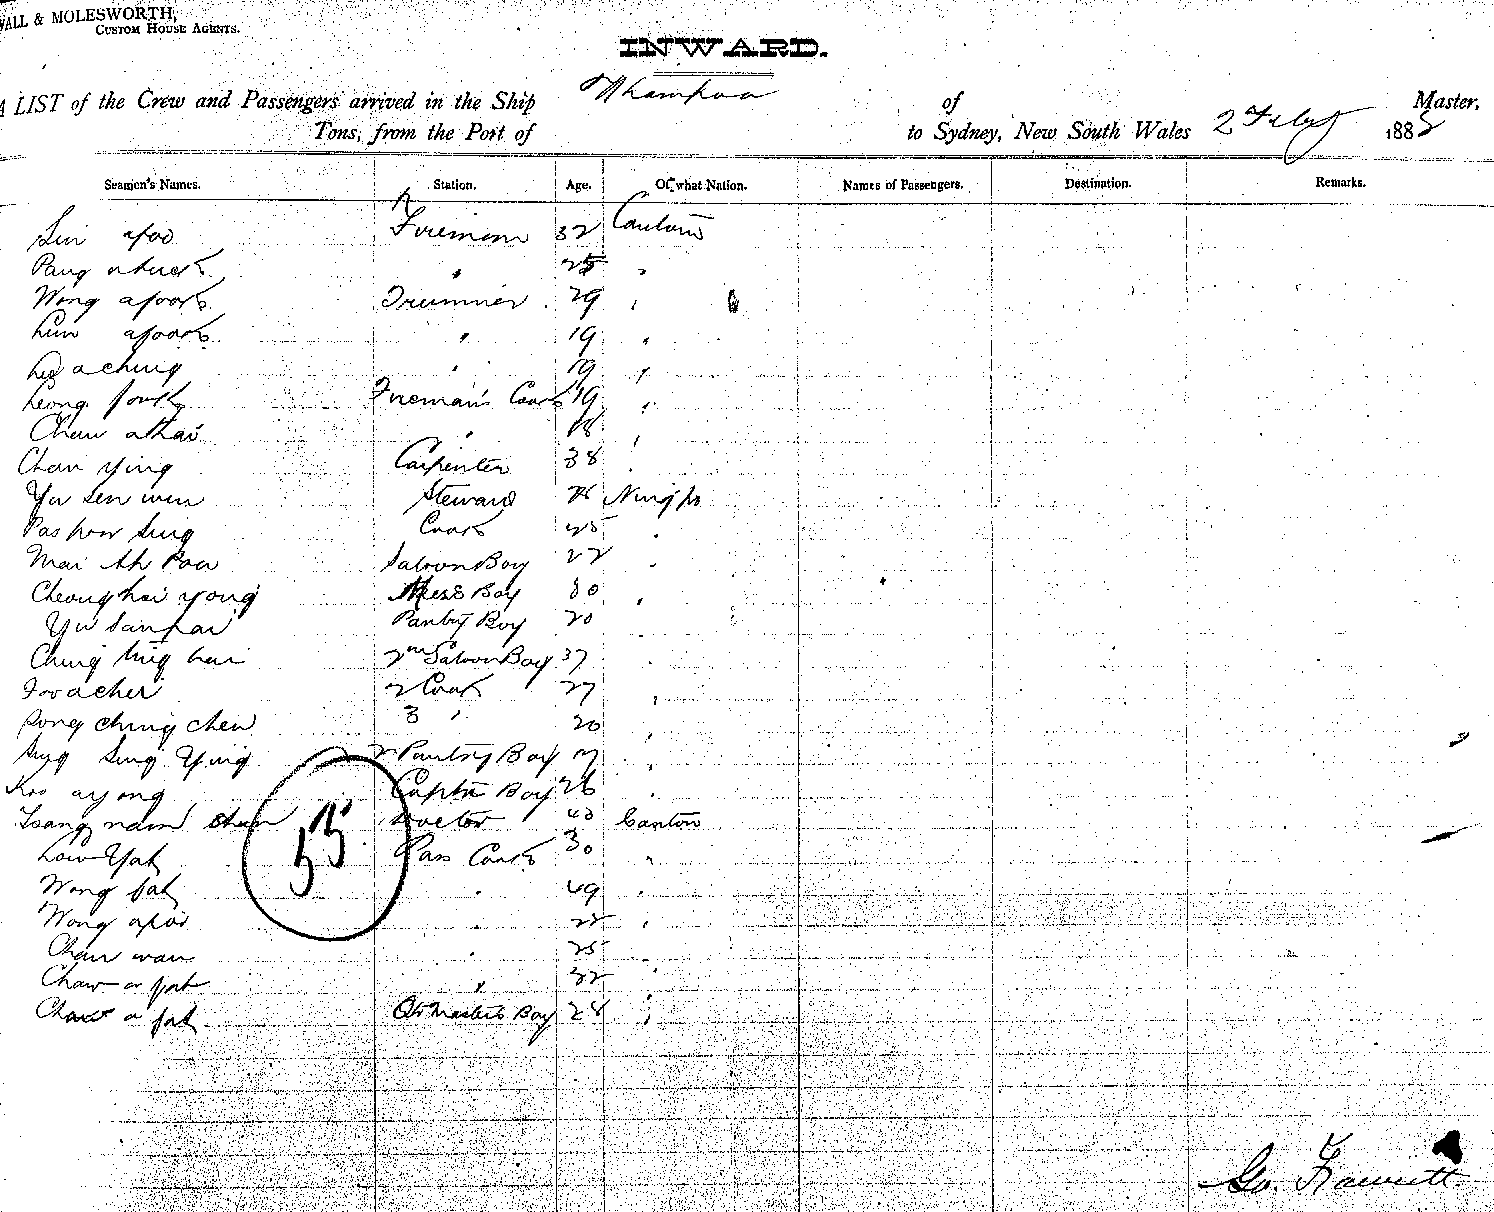 WALL & MOLESWORTH,
CUSTOM HOUSE AGENTS.
INWARD.
A LIST of the Crew and Passengers arrived in the Ship Whampoa of Master,
Tons, from the Port of to Sydney, New South Wales 2 Feby 188
Seamen's Names. Station. Age. Of what Nation. Names of Passengers. Destination. Remarks.
afoo Fireman 32 Canton
Pang 25 "
Wong afook Trimmer 29 "
afook " 19 "
Lee a ching " 19 "
Leong Fireman's Cook 19 "
Chaw athai " 18 "
Chan Ying Carpenter 38 "
Yu sen wen Steward Ningpo
Pas how Sing Cook 25 "
Mai Ah Poa Saloon Boy 22 "
Cheong hai yong Mess Boy 30 "
Yu Sanpai Pantry Boy 20
Ching ting hai 2nd Saloon Boy 37 "
Foo acher 2 Cook 27 "
Song ching chen 3 " 20 "
Sing Sing Ying 2 Pantry Boy "
Koo ayong Captn Boy 26 "
Tsang nam chun Doctor 40 Canton
Low Yak Pass Cook 30 "
Wong fat " 49 "
Wong apoi " 22 "
Chan wan " 25
Chaw a fat " 32 "
Chaw a fat Qr Masters Boy 28 "
55
Go. Fawcett